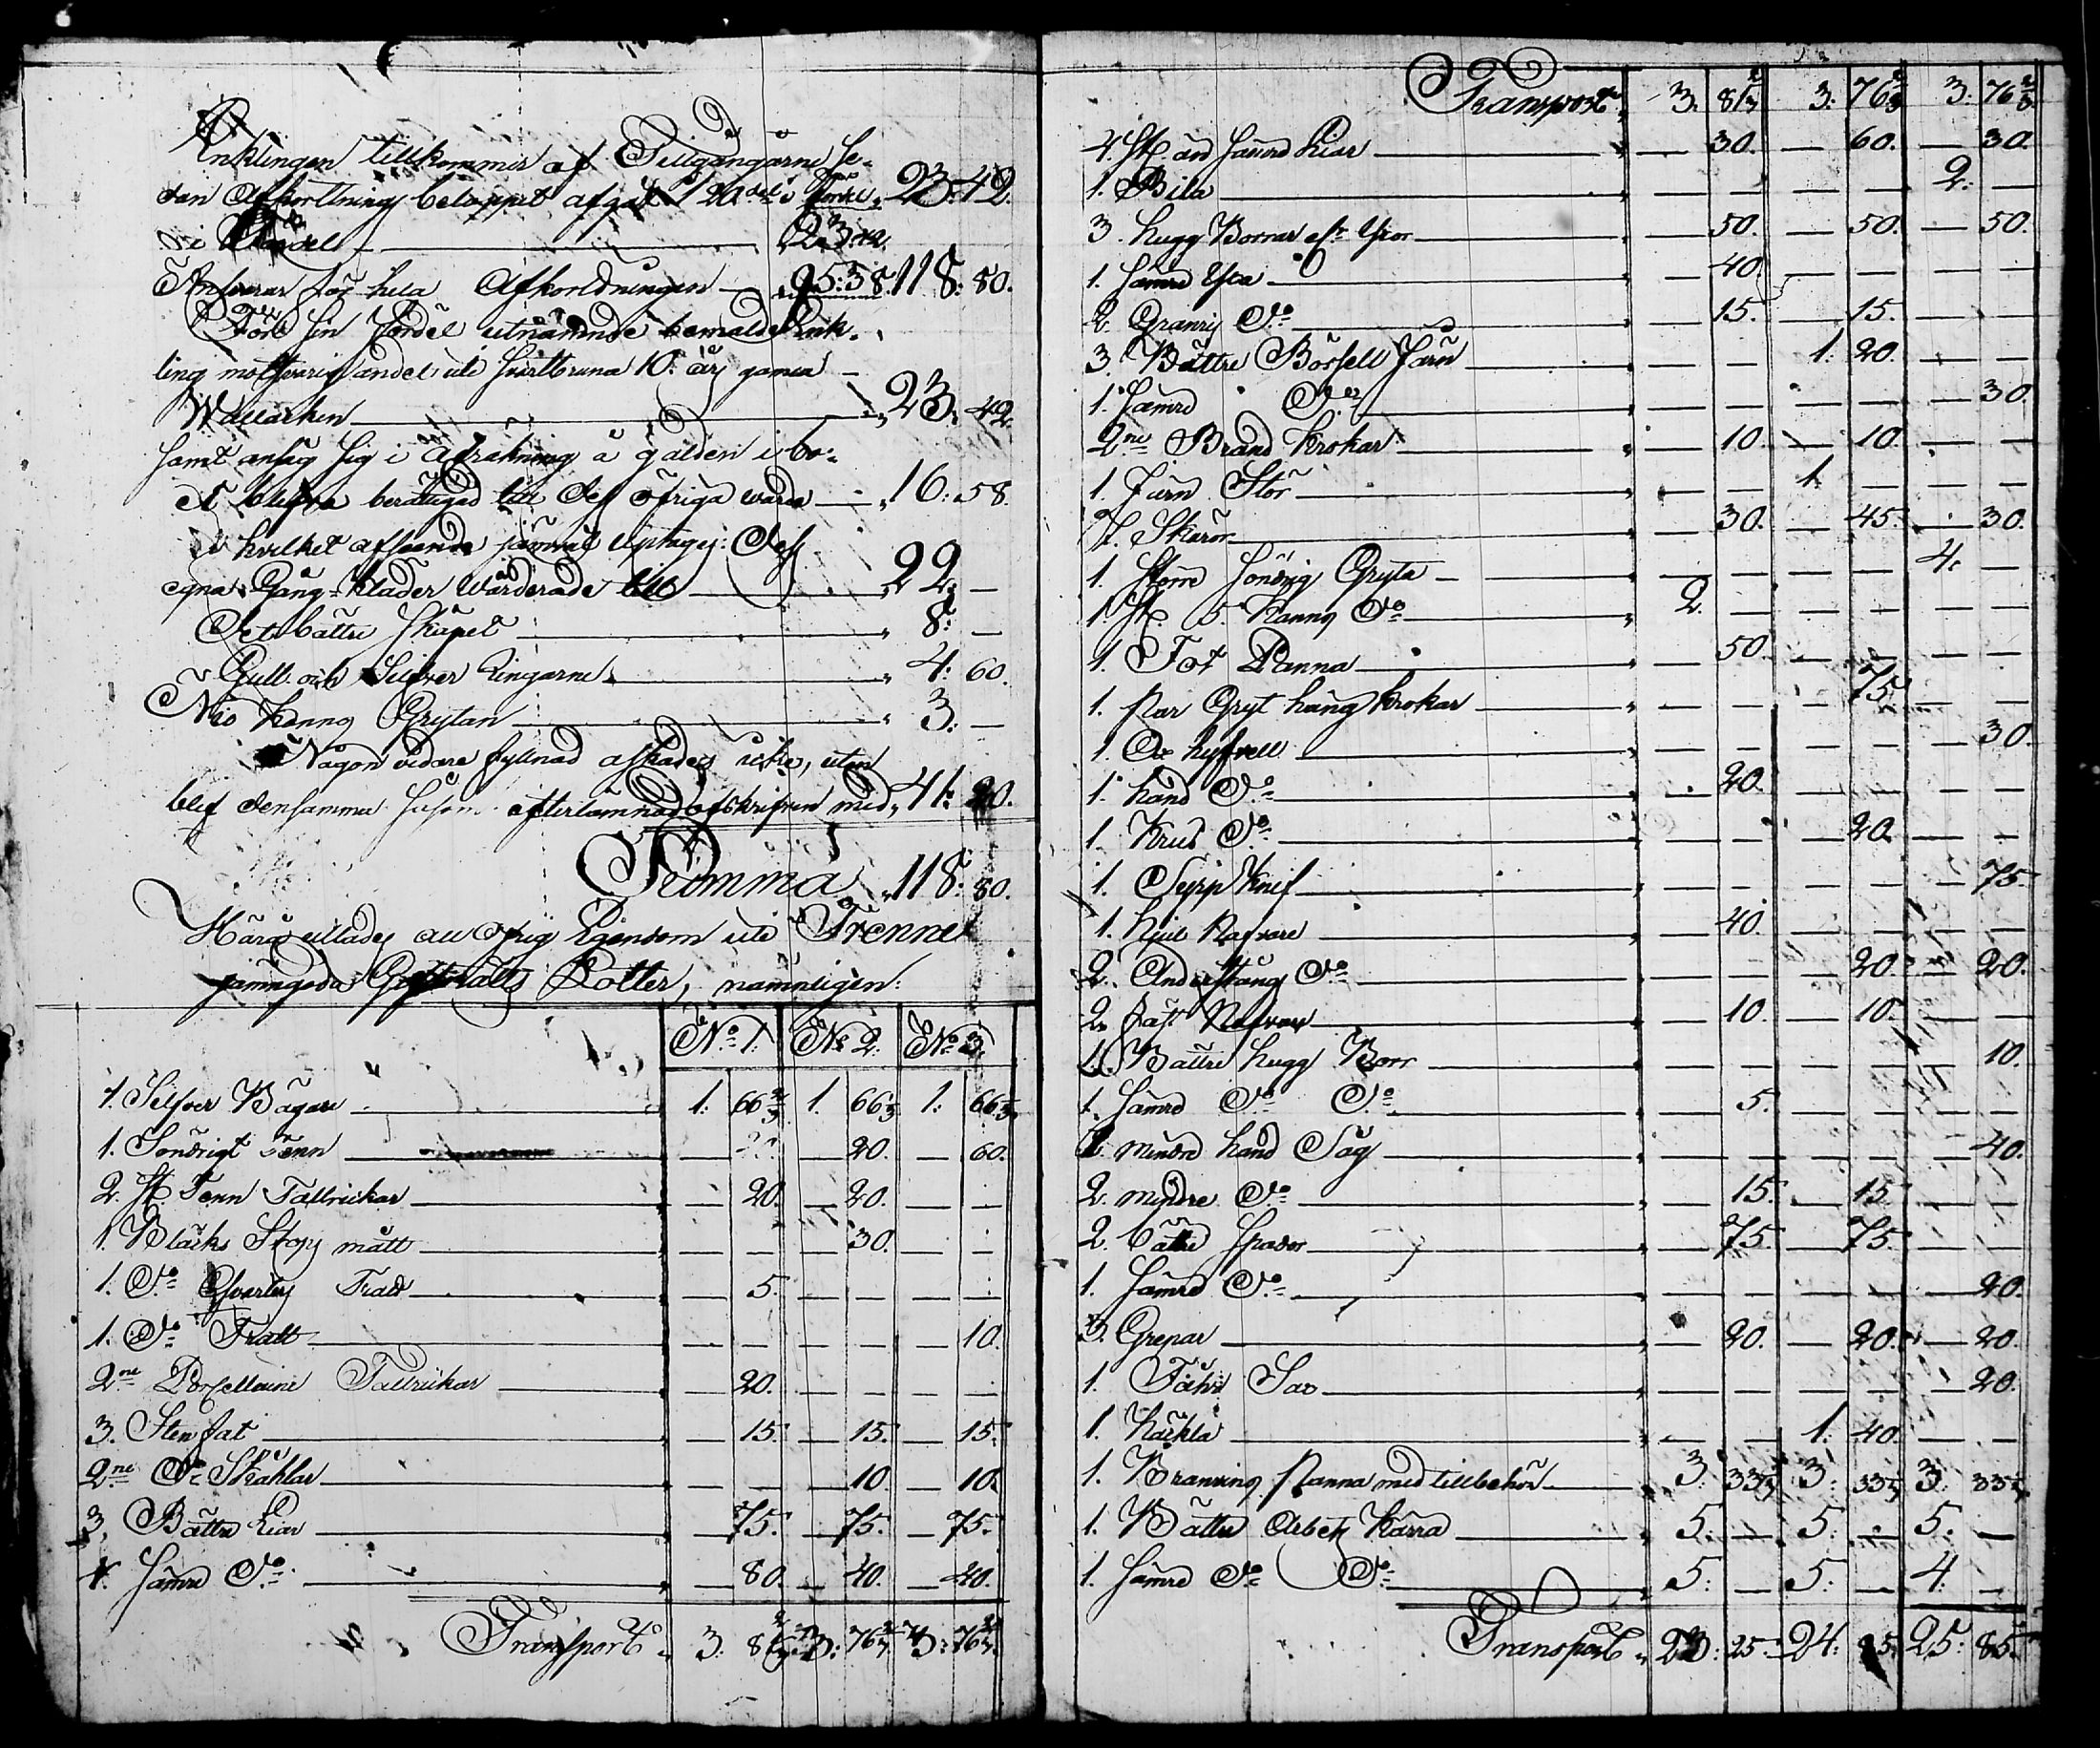 Enklingen tillkommer af Tillgångarne se-
dan Afkortning beloppet afgåt 1/20del i förde. 23: 42.
i fördel 23: 42.
hela Afkortningen 95: 38. 118: 80.
Före sin fördel utnämnde bemälde Enk-
ling motsvarig andel uti Svartbruna 10. års gamla
Wallacken 23: 42.
samt ansåg sig i Afräkning å gälden i bo-
et blifva berättigad till dess öfriga värde 16: 58.
i hvilket afseende jämväl uptages: Dess
egna Gång-Kläder värderade till 22: —
Det bättre skåpet 8: —
Gull och Silfver Ringarne 4: 60.
Nio kanns Grytan 3: —
Någon vidare fyllnad askades icke, utan
blef densamma såsom efterlämnad afskrifven med 41: 20.
Summa 118: 80.
Härå utlades all öfrig Egendom uti Trenne
jämngoda Lotter, nämnligen:
No 1. No 2. No 3.
1. Silfver Bägare 1: 66 2/3 1. 66 2/3 1: 66 2/3
1. Söndrigt Tenn — — 20. — 60.
2. St. Tenn Tallrickar — 20. — 20. — —
1. Bläcks Stop mått — — — 30. — —
1. Do Qvarters Tratt — 5. — — — —
1. Do Tratt — — — — — 10.
2ne Porcellaine Tallrickar — 20. — — — —
3. Sten fat — 15. — 15. — 15.
2ne Do Skåhlar — — — 10. — 10.
3. Bättre Liar — 75. — 75. — 75.
4. Sämre Do — 80. — 40. — 40.
Transport 3: 81 2/3 3: 76 2/3 3: 76 2/3
Transport 3. 81 2/3 3: 76 2/3 3: 76 2/3
4. St. än sämre Liar — 30. — 60. — 30.
1. Bila — — — — 2. —
3. hugg — 50. — 50. — 50.
1. sämre Yxa — 40. — — — —
2. Do — 15. — 15. — —
3. Bättre Järn — — 1: 20. — —
1. Sämre Do — — — — — 30.
2ne Brand Krokar — 10. — 10. — —
1. Järn Stör — — 1. — — —
7. Skäror — 30. — 45. — 30.
1. Större söndrig Gryta — — — — 4. —
1. St. 5. Kanns Do 2. — — — — —
1. Fot Panna — 50. — — — —
1. Par Gryt häng krokar — — — 75. — —
1. Ox hyfvell — — — — — 30.
1. hand Do — 20. — — — —
1. Krus Do — — — 20. — —
1. Knif — — — — — 75.
1. Hjul Nafvare — 40. — — — —
2. Do — — — 20. — 20.
2. Nafvar — 10. — 10. — —
1. Bättre hugg Borr — — — — — 10.
1. Sämre Do Do — 5. — — — —
1. Mindre hand Såg — — — — — 40.
2. mindre Do — 15. — 15. — —
2. bättre Spader — 75. — 75. — —
1. Sämre Do — — — — — 20.
3. Grepar — 20. — 20. — 20.
1. Fåhr Sax — — — — — 20.
1. Häckla — — 1. 40. — —
1. Bränvins Panna med tillbehör 3: 33 1/3 3: 33 1/3 3: 33 1/3
1. Bättre Arbets Kärra 5. — 5: — 5: —
1. Sämre Do Do 5: — 5: — 4. —
Transport 23: 25. 24: 85. 25: 85.